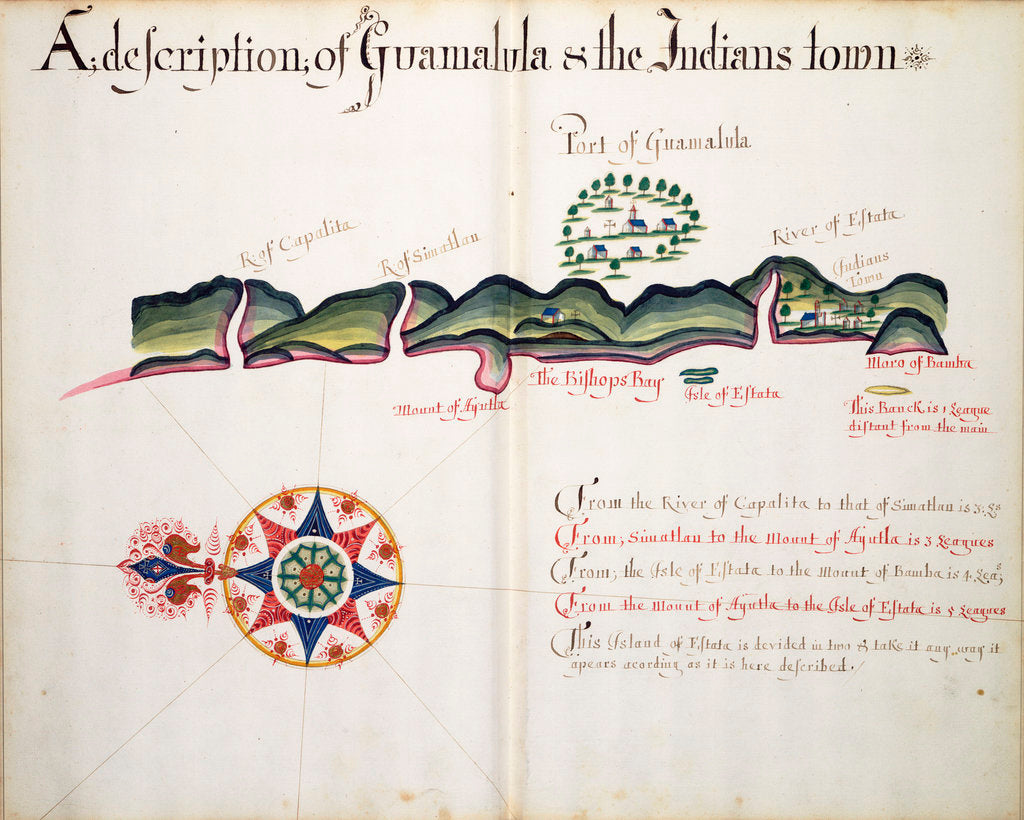 A; description; of Guamalula & the Indians town
Port of Guamalula
R: of Capalita
R: of Simatlan
River of Estata
Indians
town
Maro of Bamba
The Bishops Bay
Isle of Estata
Mount of Ayutla
This Banck is 1 League
distant from the main
From the River of Capalita to that of Simatlan is 3: Ls
From; Simatlan to the Mount of Ayutla is 3 Leagues
From; the Isle of Estata to the Mount of Bamba is 4: Leas
From the Mount of Ayutla to the Isle of Estata is 5 Leagues
This Island of Estata is devided in two & take it any way it
apears acording as it is here described.